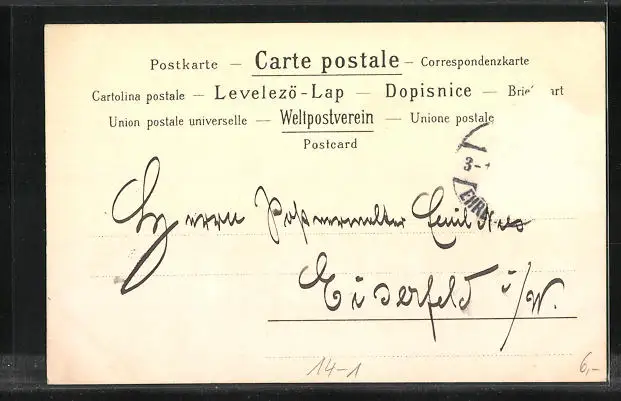 Postkarte — Carte postale — Correspondenzkarte
Cartolina postale — Levelező-Lap — Dopisnice —
Union postale universelle — Weltpostverein — Unione postale
Postcard
3-
EHR
Herrn Postverwalter Emil
Eiserfeld i/W.
14-1
6,-